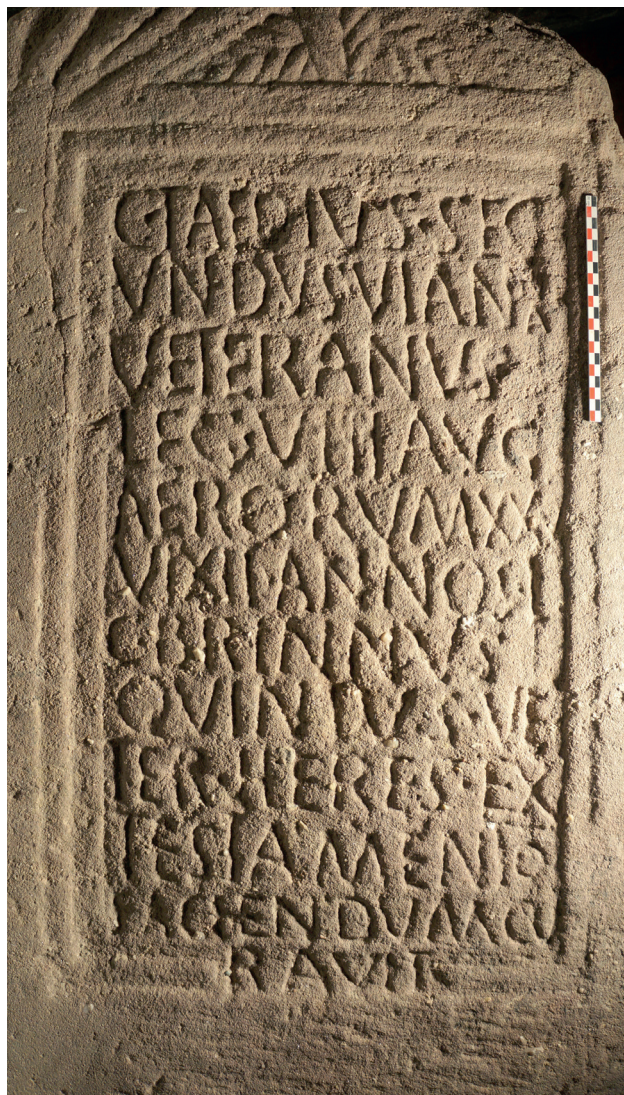 G TAEDIVS · SEC
VNDVS VIANA
VETERANVS
LEG VIII AVG
AERORVM XX
ANNO
QVIN VE
TER · HERES · EX
TESTAMENTO
FACIENDVM CV
RAVIT